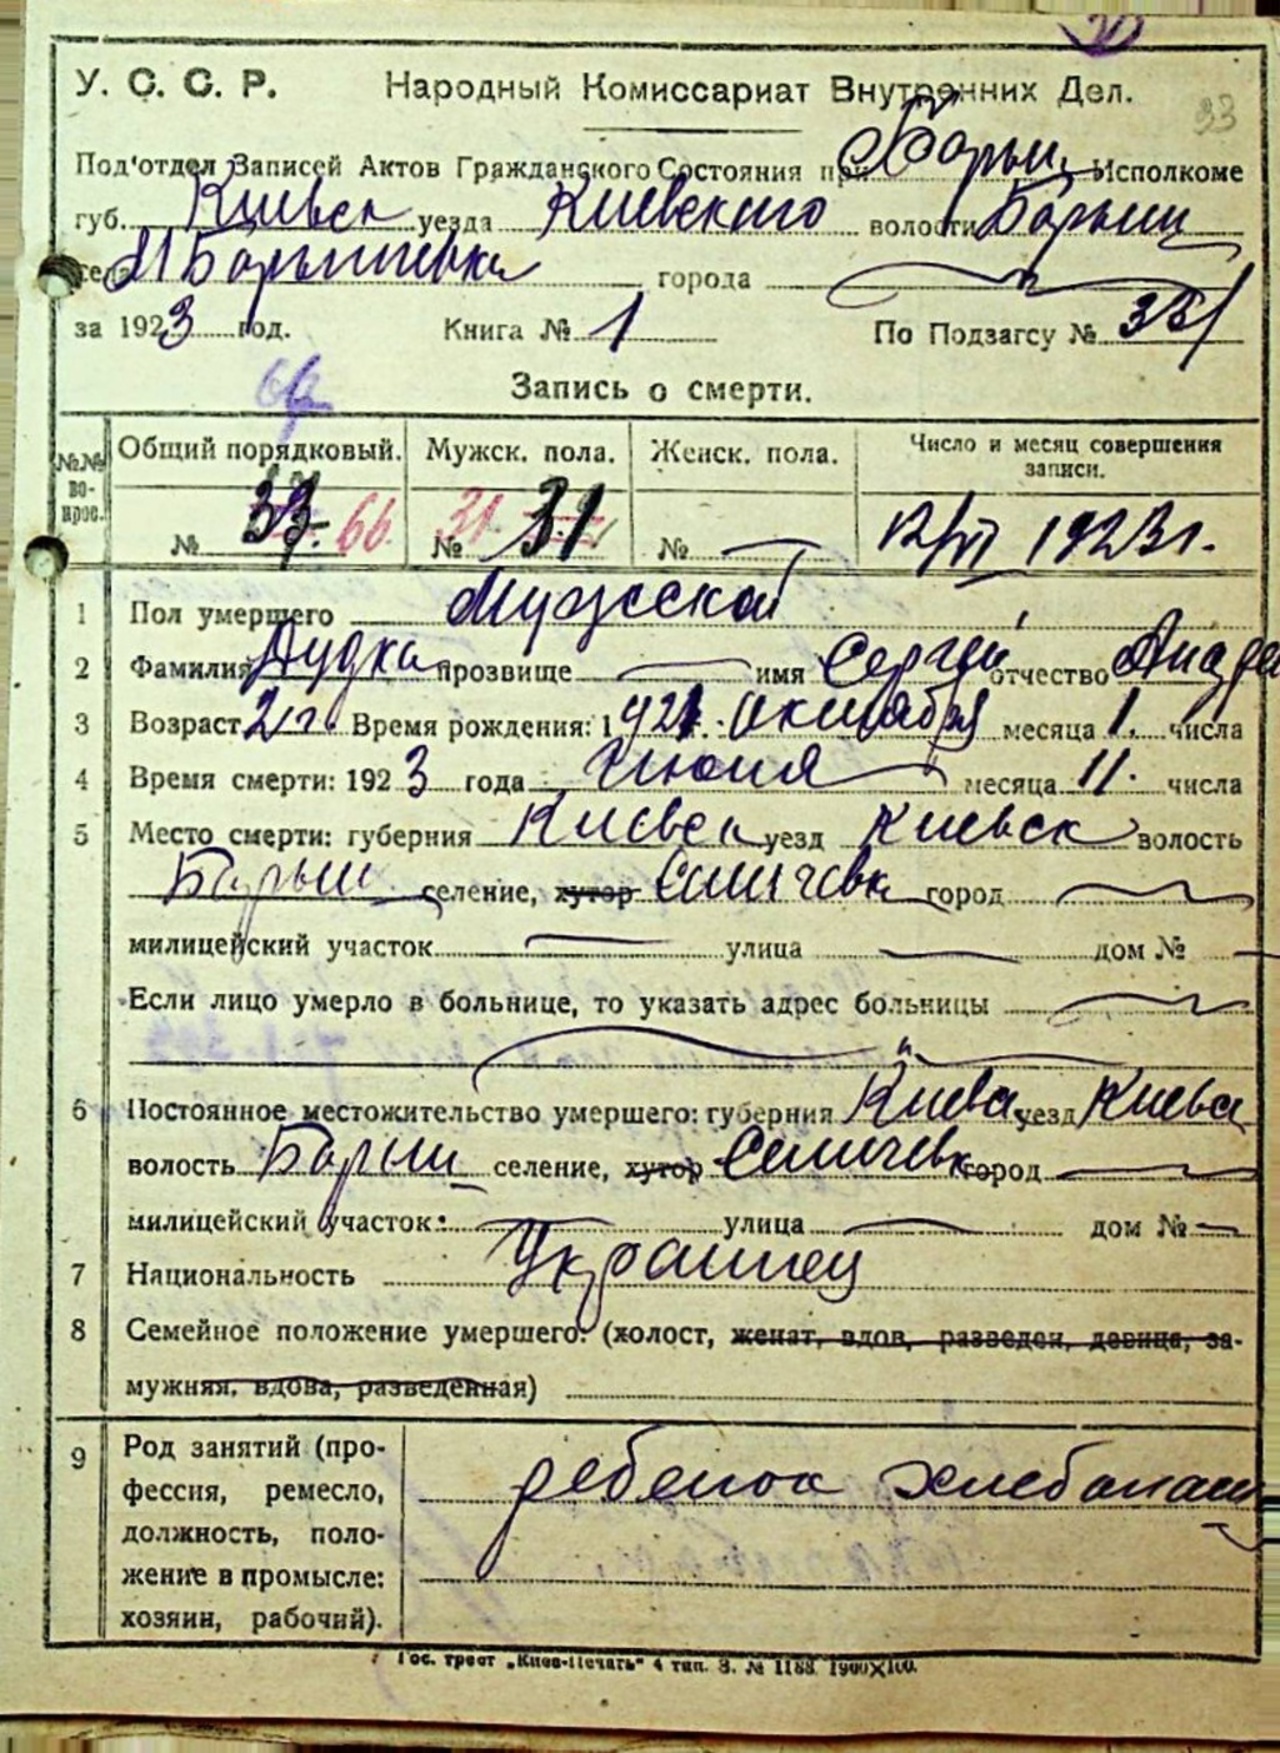 У. С. С. Р. Народный Комиссариат Внутренних Дел.
33
Под'отдел Записей Актов Гражданского Состояния при Барыш. Исполкоме
губ. Киевск уезда Киевского волости Барыш
села М Барышевка города
за 1923 год. Книга № 1 По Подзагсу №
Запись о смерти.
№№ вопрос. Общий порядковый. Мужск. пола. Женск. пола. Число и месяц совершения записи.
№ 66. № 31 31 № 12/VI 1923 г.
1 Пол умершего Мужеской
2 Фамилия Дудка прозвище имя Сергей отчество Андре
3 Возраст 2 г. Время рождения: 1921 г. Октября месяца 1. числа
4 Время смерти: 1923 года Июня месяца 11. числа
5 Место смерти: губерния Киевск уезд Киевск волость
Барыш селение, хутор Селичевк город
милицейский участок улица дом №
Если лицо умерло в больнице, то указать адрес больницы
6 Постоянное местожительство умершего: губерния Киевс уезд Киевс
волость Барыш селение, хутор Селичевк город
милицейский участок: улица дом №
7 Национальность Украинец
8 Семейное положение умершего: (холост, женат, вдов, разведен, девица, за-
мужняя, вдова, разведенная)
9 Род занятий (про- ребенок хлебопаш
фессия, ремесло,
должность, поло-
жение в промысле:
хозяин, рабочий).
Гос. трест „Киев-Печать" 4 тип. З. № 1188. 1900Х100.